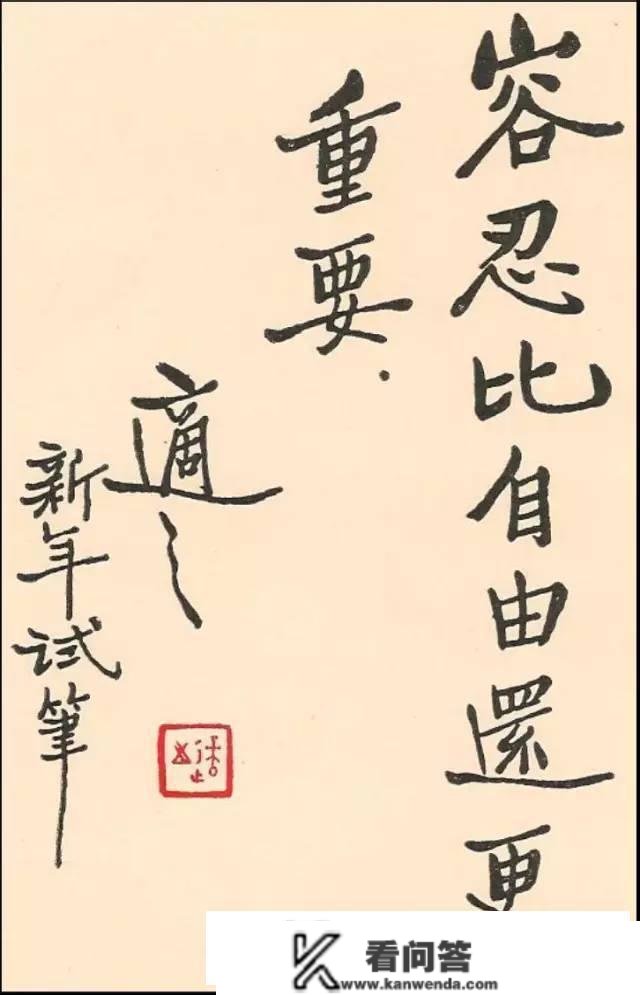 容忍比自由還更
重要.
適之
新年试筆
看问答
www.kanwenda.com